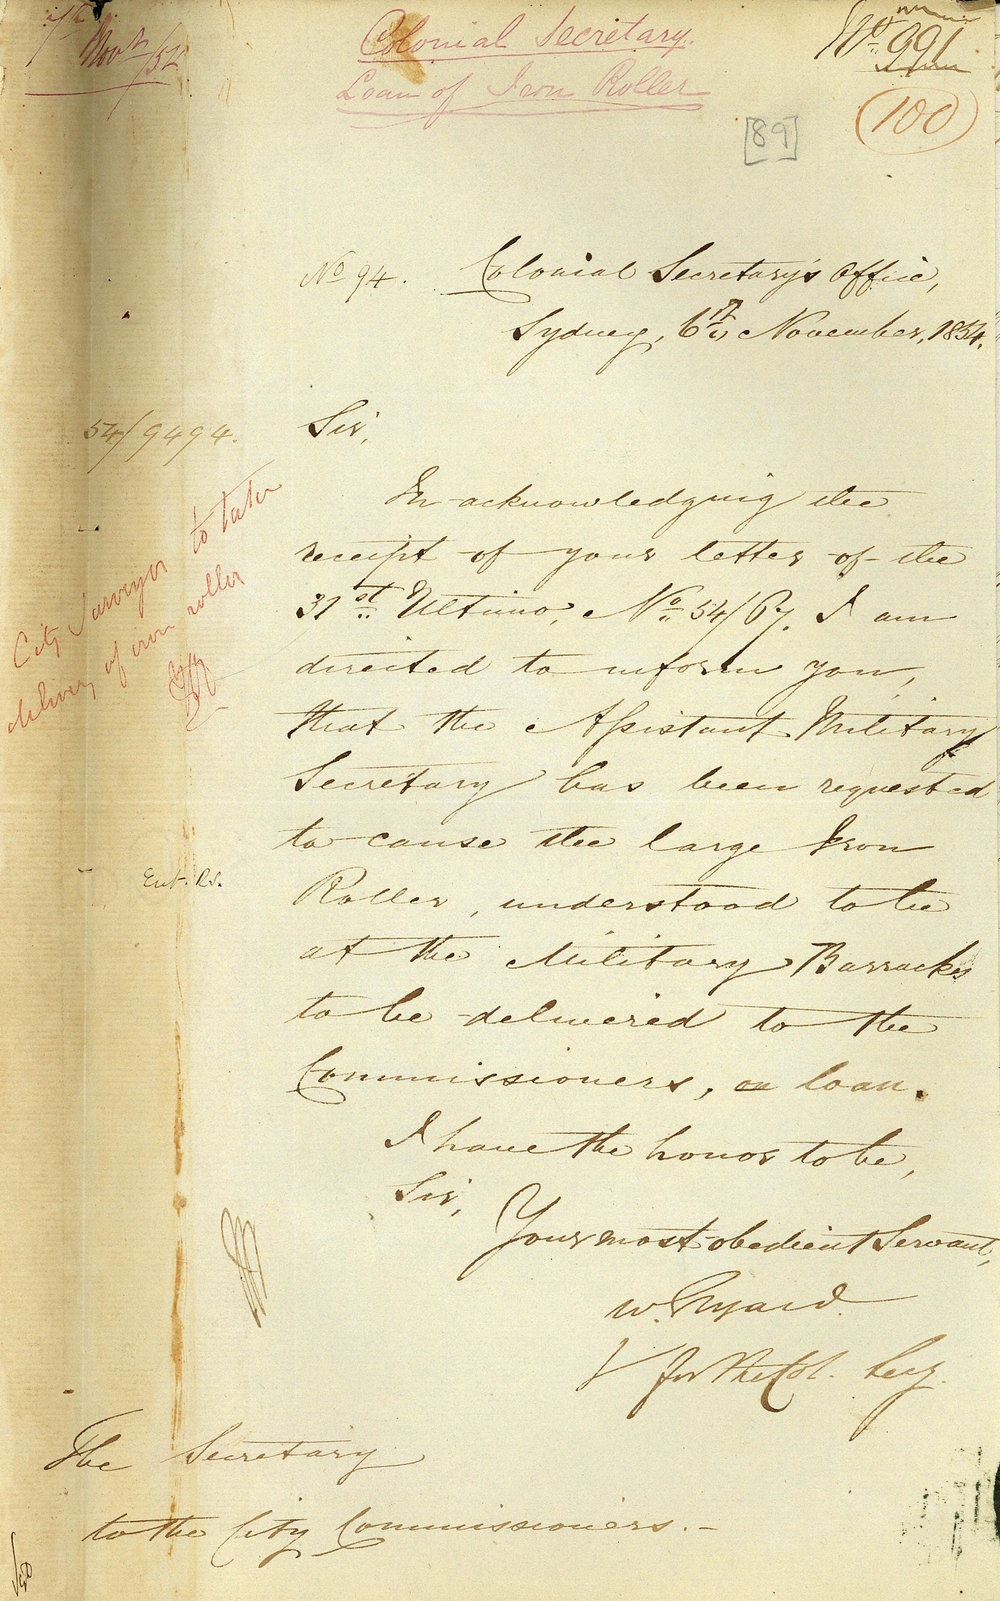 7th
Novr/54
Colonial Secretary.
Loan of Iron Roller
No 991
100
[89]
No 94.
Colonial Secretary's Office,
Sydney, 6th November, 1854.
54/9494.
Sir,
In acknowledging the
receipt of your letter of the
31st Ultimo, No 54/67, I am
directed to inform you,
that the Assistant Military
Secretary has been requested
to cause the large Iron
Roller, understood to be
at the Military Barracks
to be delivered to the
Commissioners, on loan.
I have the honor to be,
Sir,
Your most obedient Servant,
W. Elyard
for the Col. Secy.
City Surveyor to take
delivery of iron roller
Ent.
The Secretary
to the City Commissioners.-